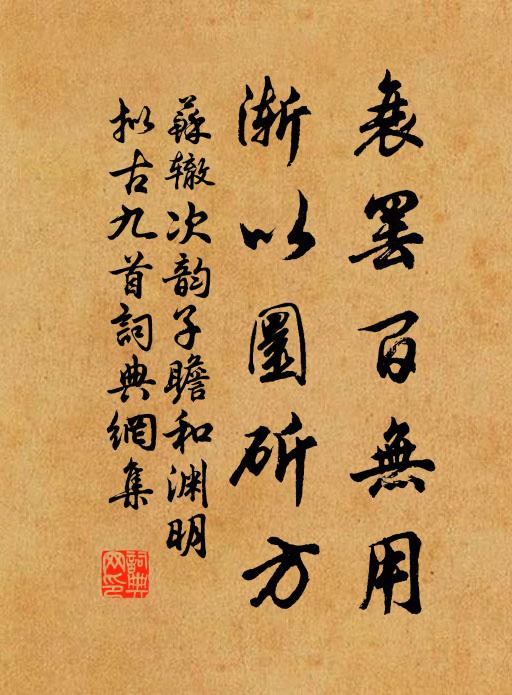 衰罢百無用
漸以圜斫方
蘇辙次韵子瞻和渊明
拟古九首詞典網集
詞典网印